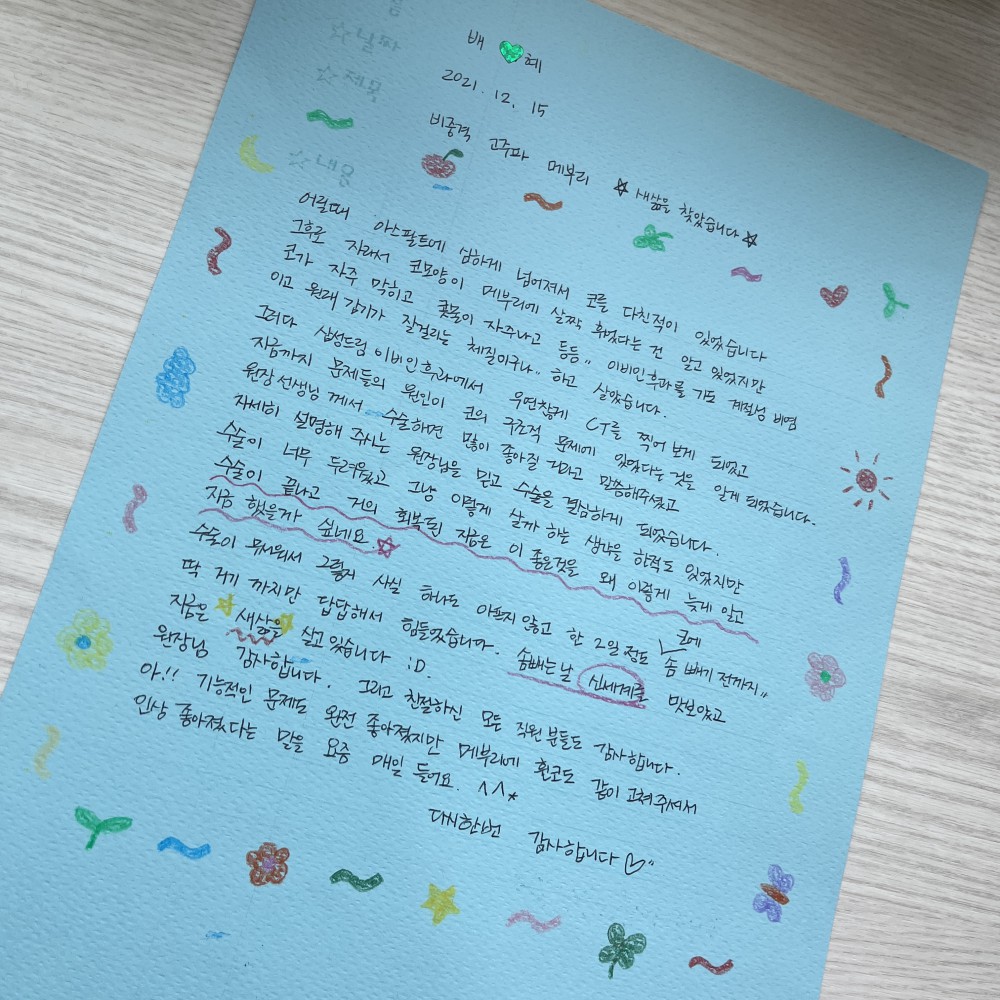 배 혜
2021. 12. 15
비중격 고주파 메부리 ☆ 새삶을 찾았습니다 ☆
어릴때 아스팔트에 심하게 넘어져서 코를 다친적이 있었습니다
그후로 자라서 코모양이 메부리에 살짝 휘었다는 건 알고 있었지만
코가 자주 막히고 콧물이 자주나고 등등'' 이비인후과를 가도 계절성 비염
이고 원래 감기가 잘걸리는 체질이구나.. 하고 살았습니다.
그러다 삼성드림이비인후과에서 우연찮게 CT를 찍어 보게 되었고
지금까지 문제들의 원인이 코의 구조적 문제에 있었다는 것을 알게 되었습니다.
원장선생님 께서 수술하면 많이 좋아질 거라고 말씀해주셨고
자세히 설명해 주시는 원장님을 믿고 수술을 결심하게 되었습니다.
수술이 너무 두려웠고 그냥 이렇게 살까 하는 생각을 한적도 있었지만
수술이 끝나고 거의 회복된 지금은 이 좋은것을 왜 이렇게 늦게 알고
지금 했을까 싶네요 ☆
수술이 무서워서 그렇지 사실 하나도 아프지 않고 한 2일 정도 코에 솜 빼기 전까지''
딱 거기 까지만 답답해서 힘들었습니다. 솜빼는 날 신세계를 맛보았고
지금은 새삶을 살고 있습니다 :D.
원장님 감사합니다. 그리고 친절하신 모든 직원 분들도 감사합니다.
아!! 기능적인 문제도 완전 좋아졌지만 메부리에 휜코도 같이 고쳐주셔서
인상 좋아졌다는 말을 요즘 매일 들어요. ^^*
다시한번 감사합니다♡''